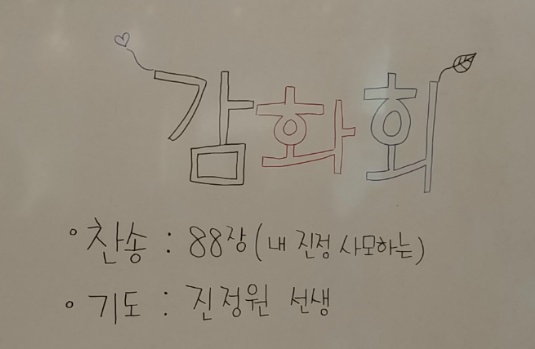 감화회
• 찬송 : 88장 (내 진정 사모하는)
• 기도 : 진정원 선생